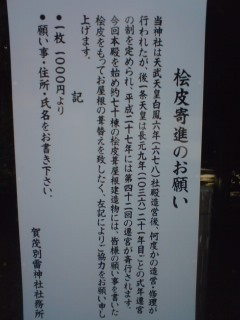 桧皮寄進のお願い
当神社は天武天皇白鳳六年(六七八)社殿造営後、何度かの造営・修理が
行われたが、後一条天皇は長元九年(一〇三六)二十一年目ごとの式年遷宮
の制を定められ、平成二十七年には第四十二回の遷宮が斎行されます。
今回本殿を始め約七十棟の桧皮葺屋根建造物には、皆様の願い事を書いた
桧皮をもってお屋根の葺替えを致したく、左記によりご協力をお願い申し
上げます。
記
●一枚 一〇〇〇円より
●願い事・住所・氏名をお書き下さい。
賀茂別雷神社社務所